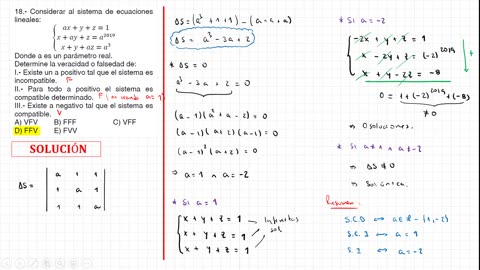 18.- Considerar al sistema de ecuaciones
lineales:
ax + y + z = 1
x + ay + z = a²⁰¹⁹
x + y + az = a³
Donde a es un parámetro real.
Determine la veracidad o falsedad de:
I.- Existe un a positivo tal que el sistema es
incompatible. F
II.- Para todo a positivo el sistema es
compatible determinado. F
III.- Existe a negativo tal que el sistema es
compatible. V
A) VFV B) FFF C) VFF
D) FFV E) FVV
SOLUCIÓN
ΔS =
a 1 1
1 a 1
1 1 a
ΔS = (a³ + 1 + 1) - (a + a + a)
ΔS = a³ - 3a + 2
* ΔS = 0
a³ - 3a + 2 = 0
(a-1)(a² + a - 2) = 0
(a-1)(a-1)(a+2) = 0
(a-1)²(a+2) = 0
⇒ a = 1 ∧ a = -2
* Si a = 1
x + y + z = 1
x + y + z = 1
x + y + z = 1
Infinitas
sol
* Si a = -2
-2x + y + z = 1
x - 2y + z = (-2)²⁰¹⁹
x + y - 2z = -8
+
0 = 1 + (-2)²⁰¹⁹ + (-8)
≠ 0
⇒ 0 soluciones.
* Si a ≠ 1 ∧ a ≠ -2
⇒ ΔS ≠ 0
⇒ Sol única.
Resumen:
S.C.D ↔ a ∈ ℝ - {1, -2}
S.C.I ↔ a = 1
S.I ↔ a = -2